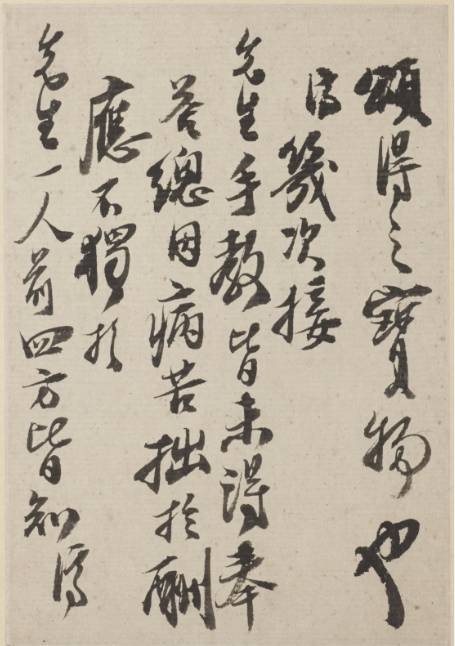 頌得之寶物也
濟幾次接
先生手教皆未得奉
答總因病苦拙於酬
應不獨於
先生一人前四方皆知濟